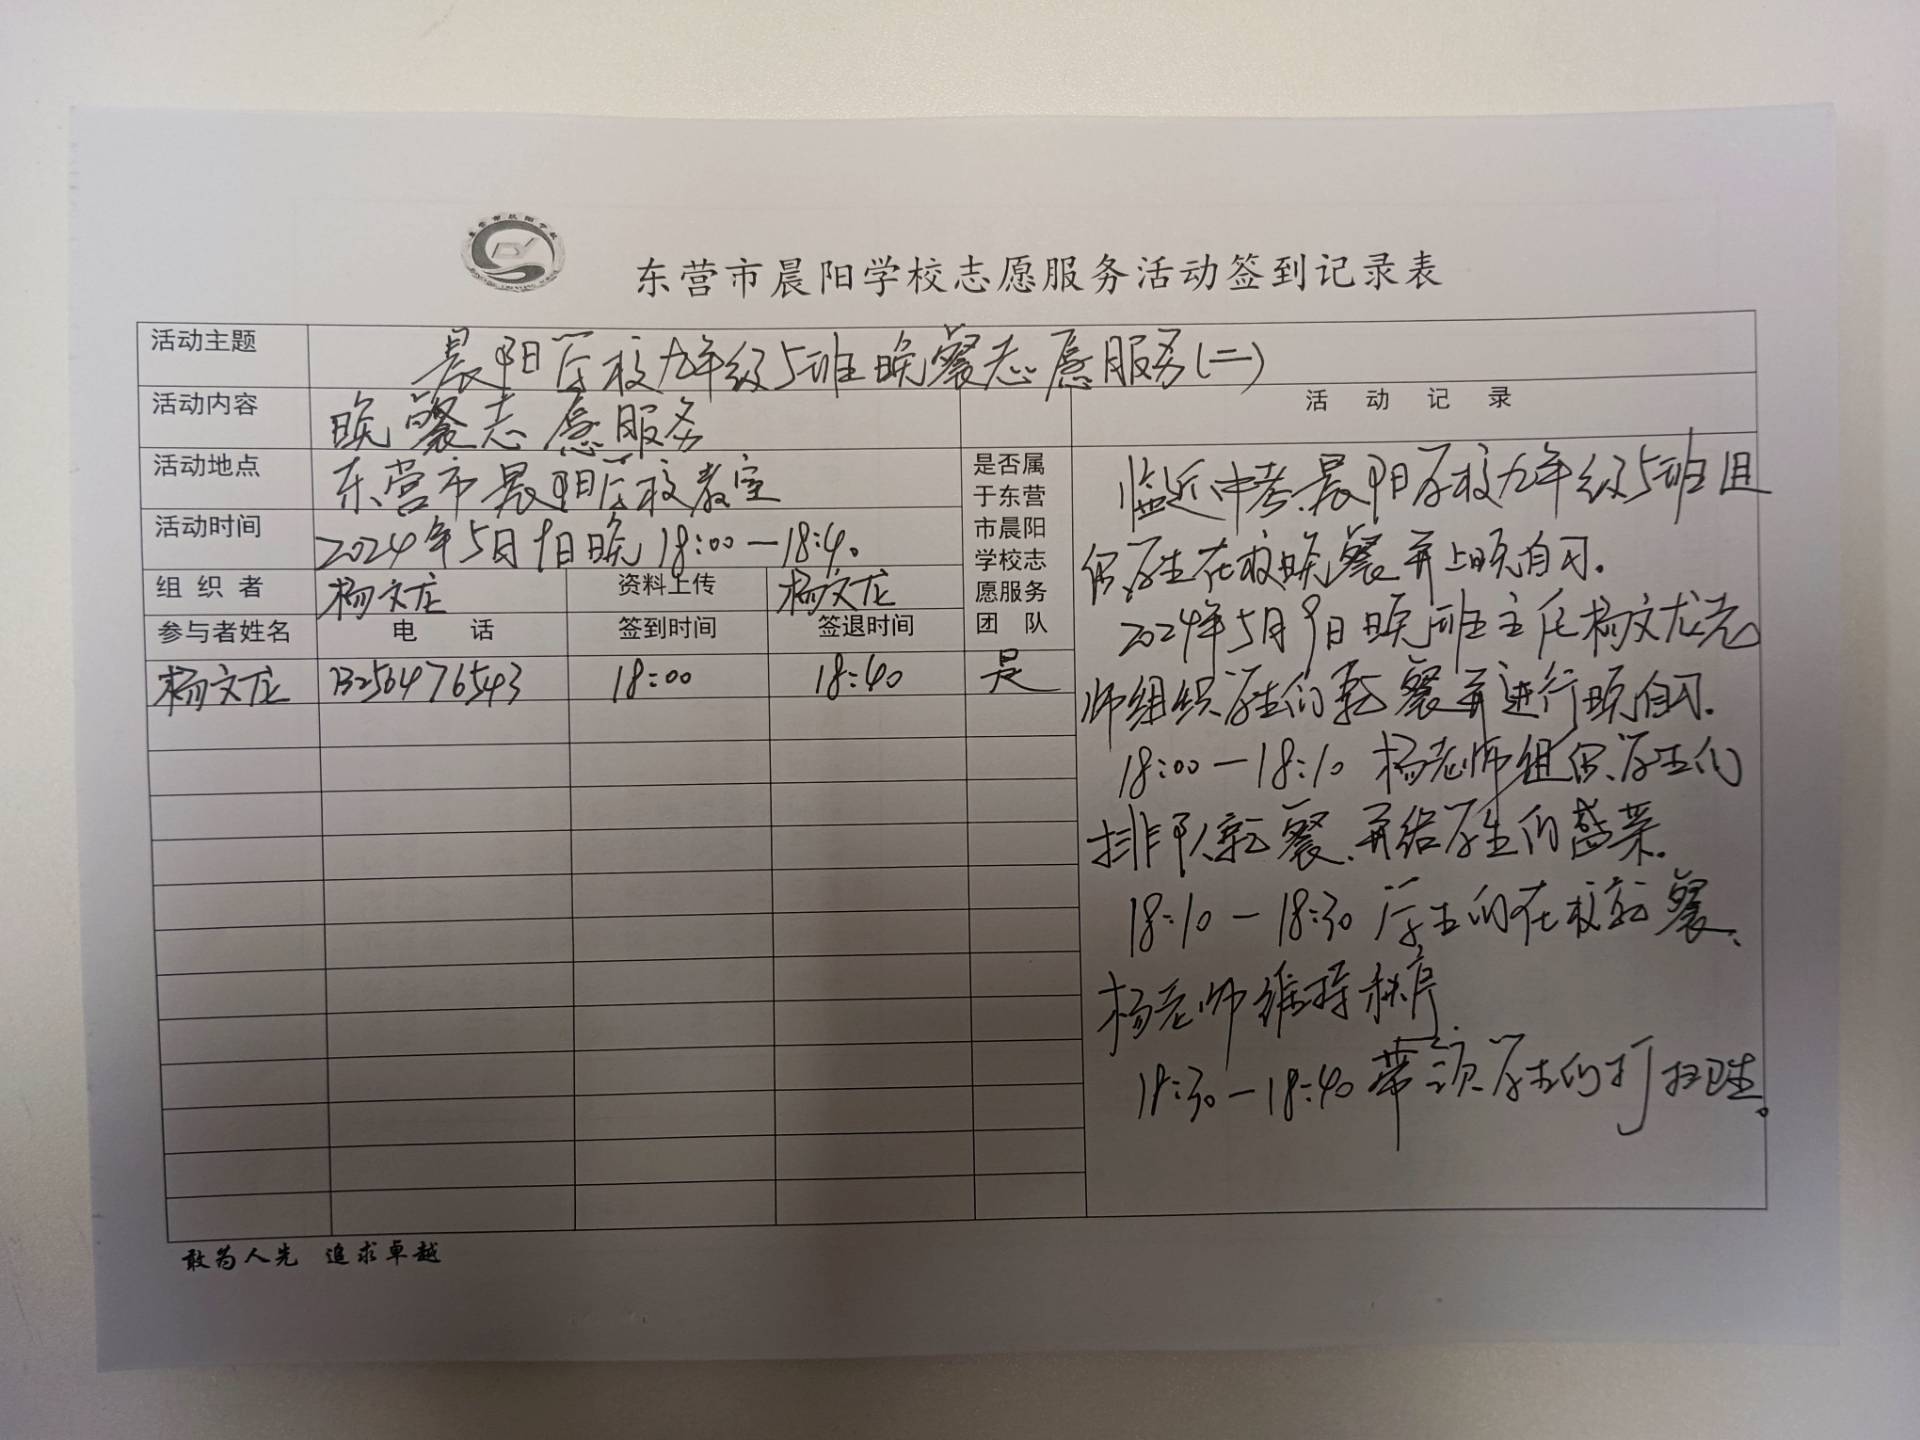 东营市晨阳学校志愿服务活动签到记录表
活动主题 晨阳学校九年级5班晚餐志愿服务(二)
活动内容 晚餐志愿服务
活动记录
活动地点 东营市晨阳学校教室
活动时间 2024年5月9日晚18:00—18:40
组织者 杨文龙 资料上传 杨文龙
参与者姓名 电话 签到时间 签退时间
是否属
于东营
市晨阳
学校志
愿服务
团队
杨文龙 13256476543 18:00 18:40 是
临近中考,晨阳学校九年级5班组
织学生在校晚餐并上晚自习。
2024年5月9日晚班主任杨文龙老
师组织学生们就餐并进行晚自习。
18:00—18:10 杨老师组织学生们
排队就餐,并给学生们盛菜。
18:10—18:30 学生们在校就餐、
杨老师维持秩序
18:30—18:40 带领学生们打扫卫生。
敢为人先 追求卓越